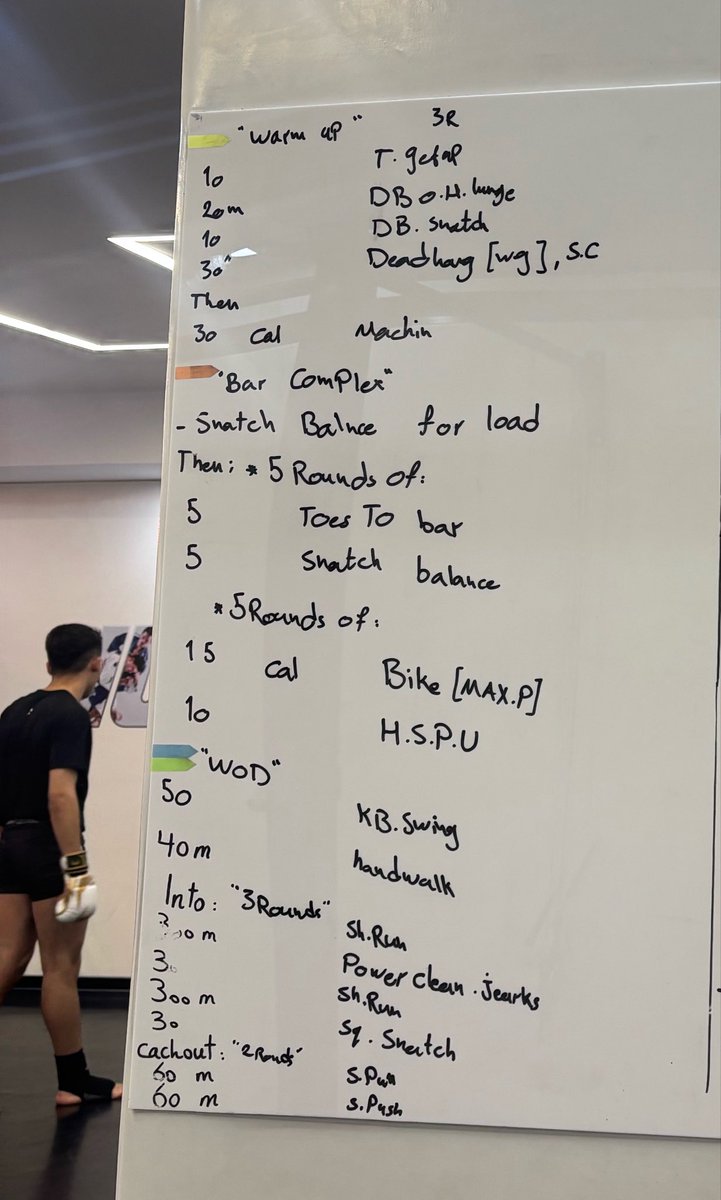 "Warm up" 3R
10 T. getup
20m DB O.H. lunge
10 DB. Snatch
30" Deadhang [wg], S.C
Then
30 Cal Machin
"Bar Complex"
- Snatch Balnce for load
Then; * 5 Rounds of:
5 Toes To bar
5 Snatch balance
* 5 Rounds of:
15 Cal Bike [MAX.P]
10 H.S.P.U
"WOD"
50 KB. Swing
40 m handwalk
Into: "3 Rounds"
300 m Sh.Run
30 Power clean . jearks
300 m Sh.Run
30 Sq. Snatch
Cachout: "2 Rounds"
60 m S.Pull
60 m S.Push